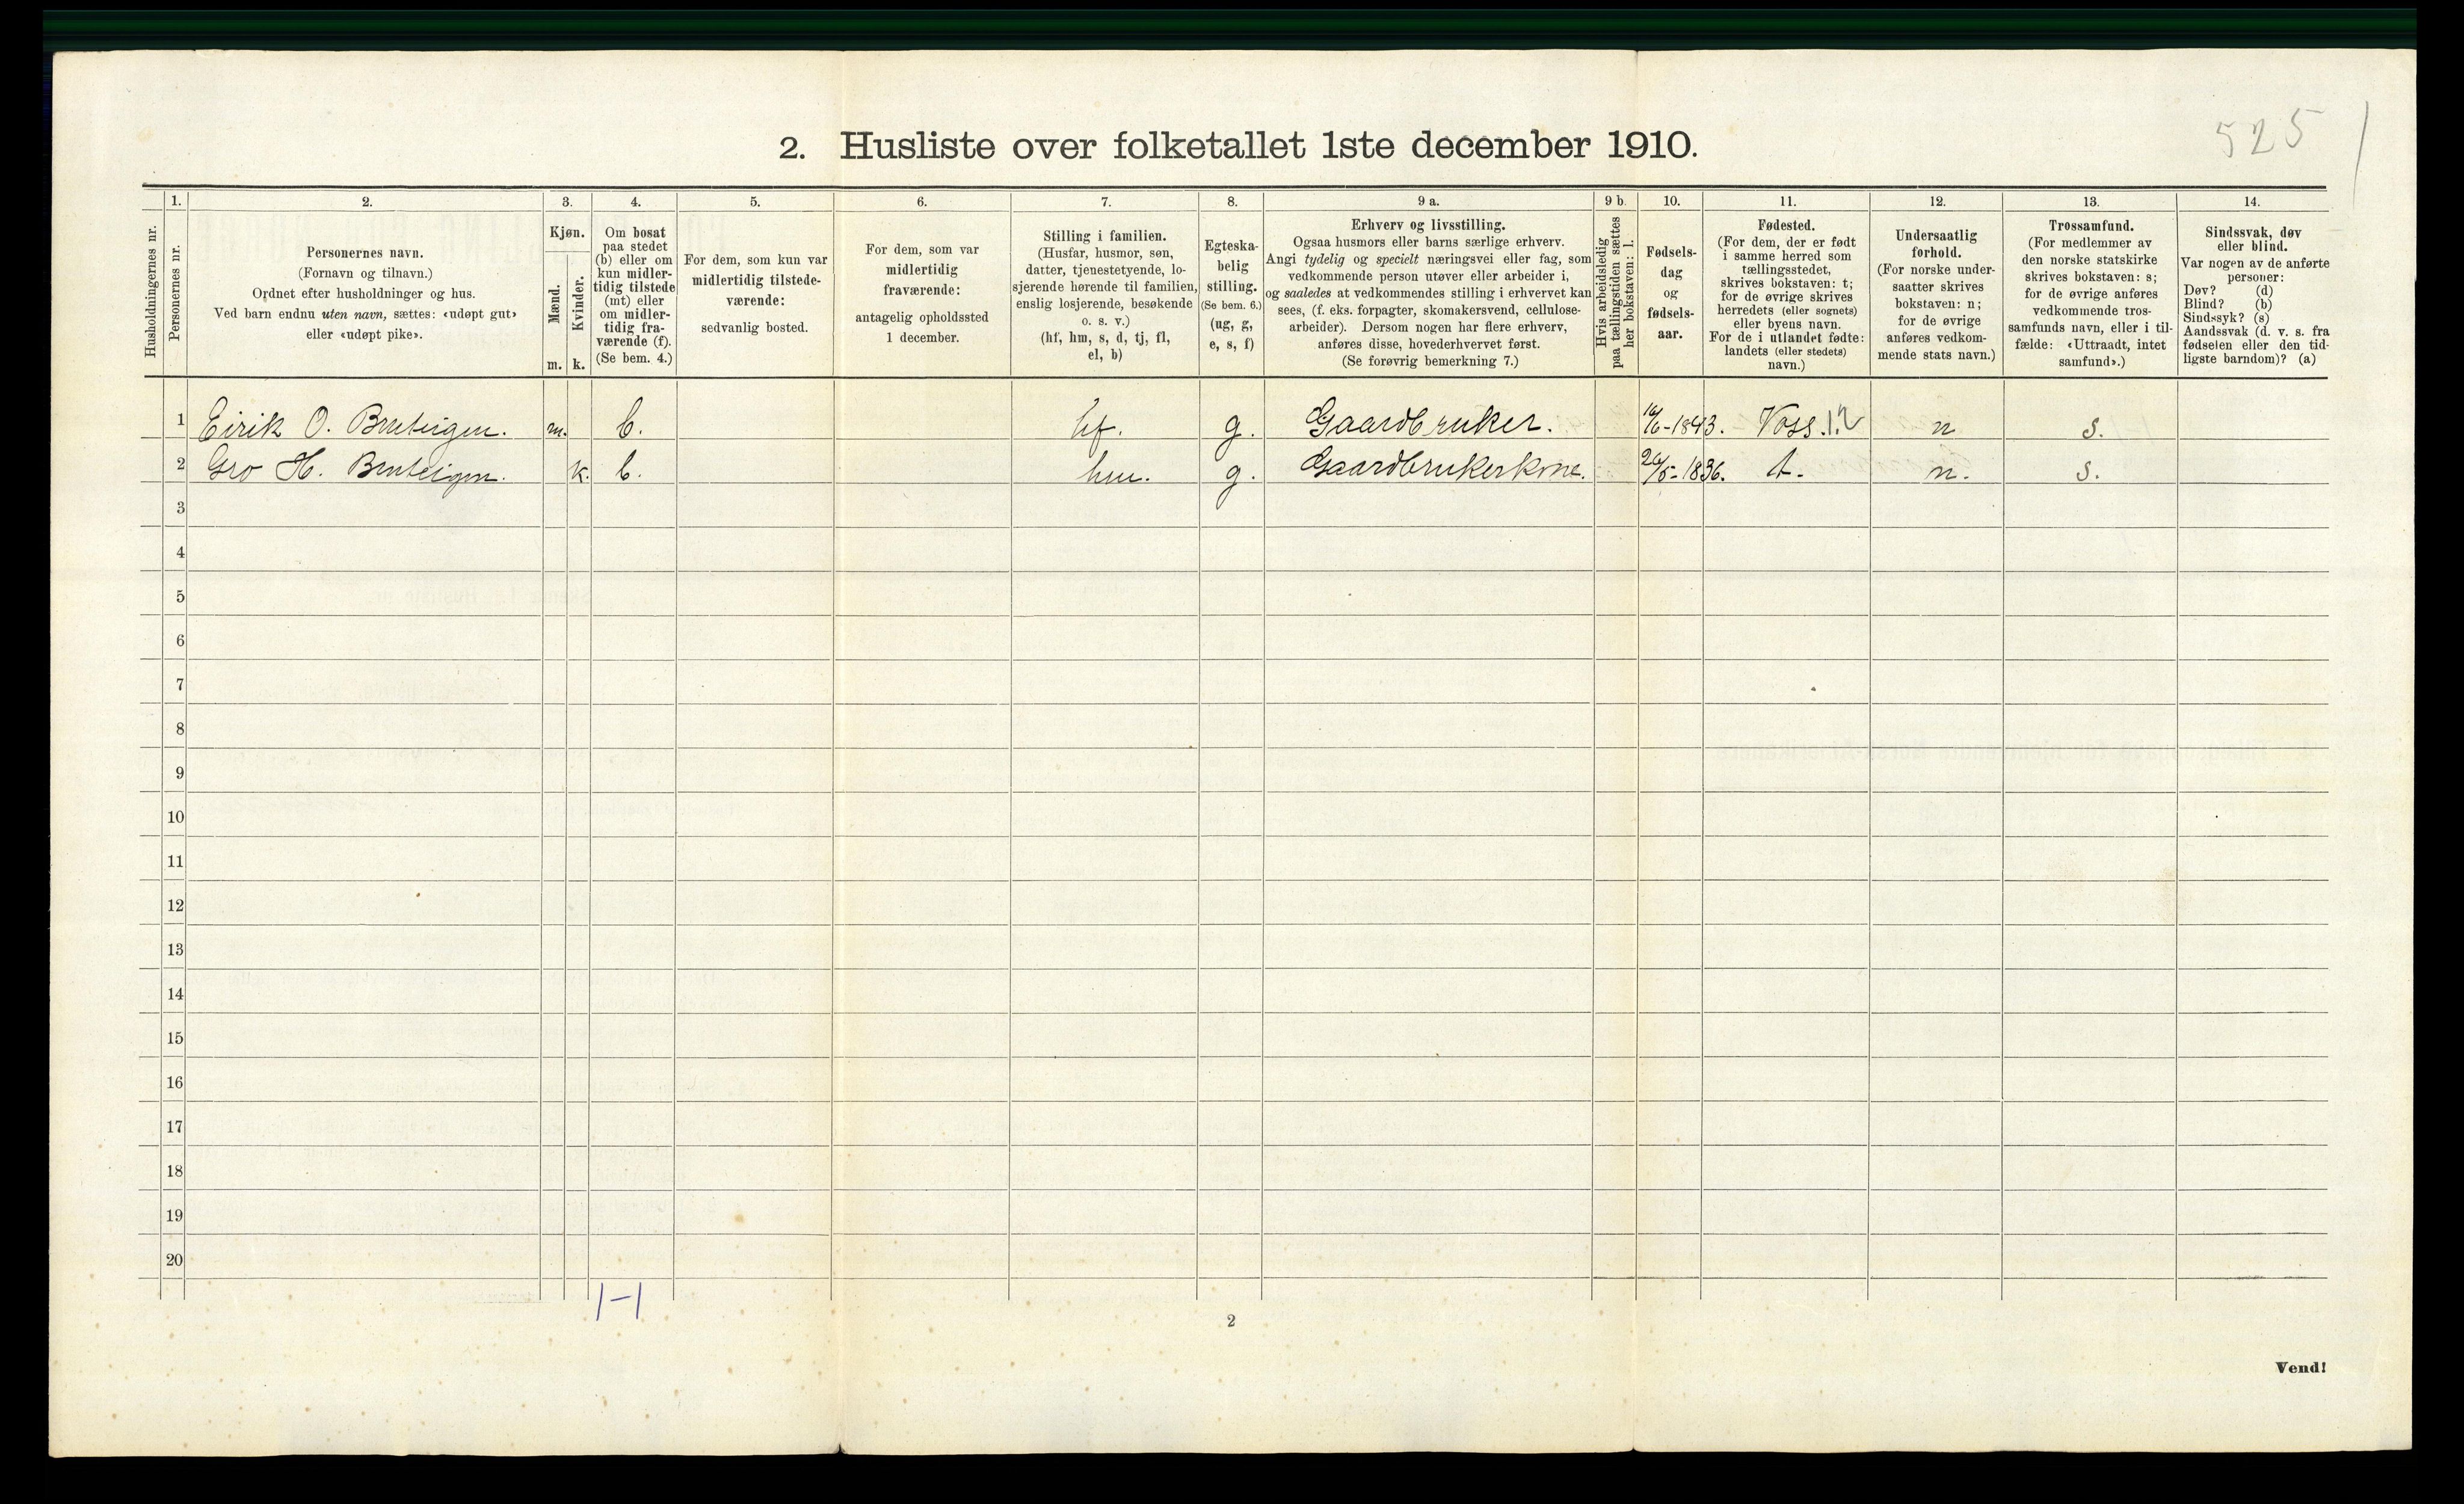 525
2. Husliste over folketallet 1ste december 1910.
Husholdningernes nr.
1.
Personernes nr.
2.
Personernes navn.
(Fornavn og tilnavn.)
Ordnet efter husholdninger og hus.
Ved barn endnu uten navn, sættes: «udøpt gut»
eller «udøpt pike».
3.
Kjøn.
Mænd.
Kvinder.
m. k.
4.
Om bosat
paa stedet
(b) eller om
kun midler-
tidig tilstede
(mt) eller
om midler-
tidig fra-
værende (f).
(Se bem. 4.)
5.
For dem, som kun var
midlertidig tilstede-
værende:
sedvanlig bosted.
6.
For dem, som var
midlertidig
fraværende:
antagelig opholdssted
1 december.
7.
Stilling i familien.
(Husfar, husmor, søn,
datter, tjenestetyende, lo-
sjerende hørende til familien,
enslig losjerende, besøkende
o. s. v.)
(hf, hm, s, d, tj, fl,
el, b)
8.
Egteska-
belig
stilling.
(Se bem. 6.)
(ug, g,
e, s, f)
9 a.
Erhverv og livsstilling.
Ogsaa husmors eller barns særlige erhverv.
Angi tydelig og specielt næringsvei eller fag, som
vedkommende person utøver eller arbeider i,
og saaledes at vedkommendes stilling i erhvervet kan
sees, (f. eks. forpagter, skomakersvend, cellulose-
arbeider). Dersom nogen har flere erhverv,
anføres disse, hovederhvervet først.
(Se forøvrig bemerkning 7.)
9 b.
Hvis arbeidsledig
paa tællingstiden sættes
her bokstaven: l.
10.
Fødsels-
dag
og
fødsels-
aar.
11.
Fødested.
(For dem, der er født
i samme herred som
tællingsstedet,
skrives bokstaven: t;
for de øvrige skrives
herredets (eller sognets)
eller byens navn.
For de i utlandet fødte:
landets (eller stedets)
navn.)
12.
Undersaatlig
forhold.
(For norske under-
saatter skrives
bokstaven: n;
for de øvrige
anføres vedkom-
mende stats navn.)
13.
Trossamfund.
(For medlemmer av
den norske statskirke
skrives bokstaven: s;
for de øvrige anføres
vedkommende tros-
samfunds navn, eller i til-
fælde: «Uttraadt, intet
samfund».)
14.
Sindssvak, døv
eller blind.
Var nogen av de anførte
personer:
Døv? (d)
Blind? (b)
Sindssyk? (s)
Aandssvak (d. v. s. fra
fødselen eller den tid-
ligste barndom)? (a)
1 Eirik O. Bruteigen. m. b. hf. g. Gaardbruker. 16/6-1843. Voss. 12 n s.
2 Gro H. Bruteigen. k. b. hm. g. Gaardbrukerkone. 26/5-1836. t. n. s.
3
4
5
6
7
8
9
10
11
12
13
14
15
16
17
18
19
20
1-1
2
Vend!